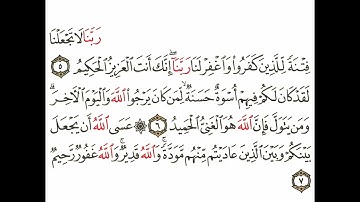 رَبَّنَا لَا تَجْعَلْنَا
فِتْنَةً لِّلَّذِينَ كَفَرُوا۟ وَٱغْفِرْ لَنَا رَبَّنَآ ۖ إِنَّكَ أَنتَ ٱلْعَزِيزُ ٱلْحَكِيمُ ٥
لَقَدْ كَانَ لَكُمْ فِيهِمْ أُسْوَةٌ حَسَنَةٌ لِّمَن كَانَ يَرْجُوا۟ ٱللَّهَ وَٱلْيَوْمَ ٱلْـَٔاخِرَ ۚ
وَمَن يَتَوَلَّ فَإِنَّ ٱللَّهَ هُوَ ٱلْغَنِىُّ ٱلْحَمِيدُ ٦ ۞ عَسَى ٱللَّهُ أَن يَجْعَلَ
بَيْنَكُمْ وَبَيْنَ ٱلَّذِينَ عَادَيْتُم مِّنْهُم مَّوَدَّةً ۚ وَٱللَّهُ قَدِيرٌ ۚ وَٱللَّهُ غَفُورٌ رَّحِيمٌ
٧